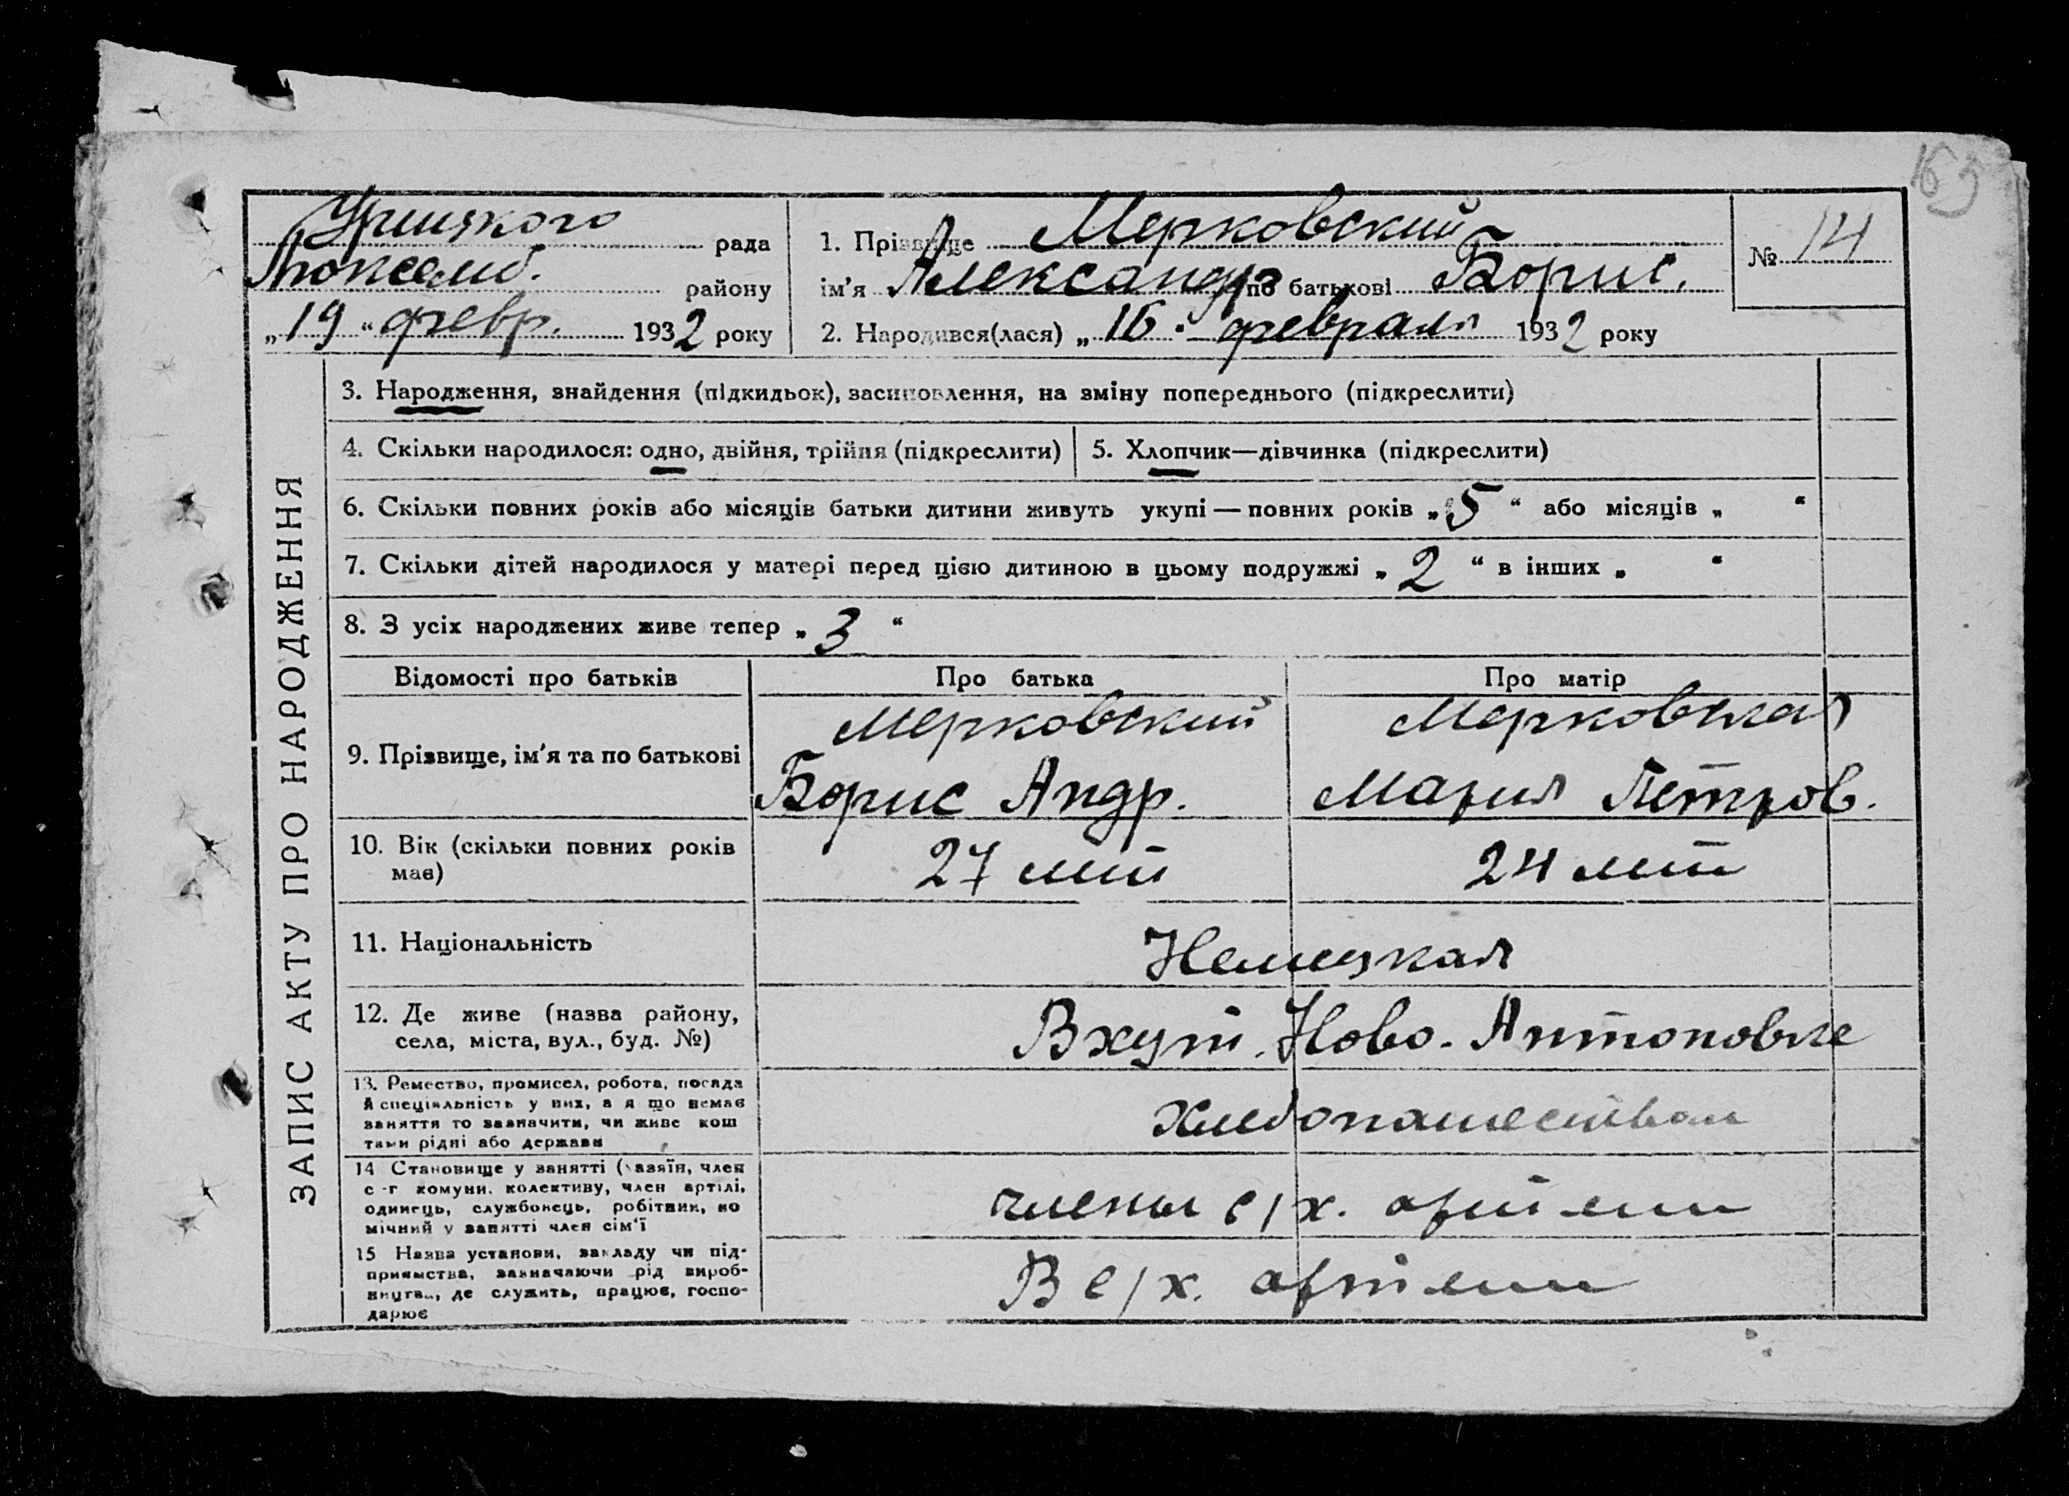 163
Урицкого рада
Люксемб. району
„19“ февр. 1932 року
1. Прізвище Мерковский
ім'я Александр по батькові Борис.
№ 14
2. Народився(лася) „16“ февраля 1932 року
ЗАПИС АКТУ ПРО НАРОДЖЕННЯ
3. Народження, знайдення (підкидьок), засиновлення, на зміну попереднього (підкреслити)
4. Скільки народилося: одно, двійня, трійня (підкреслити)
5. Хлопчик—дівчинка (підкреслити)
6. Скільки повних років або місяців батьки дитини живуть укупі — повних років „5“ або місяців „ “
7. Скільки дітей народилося у матері перед цією дитиною в цьому подружжі „2“ в інших „ “
8. З усіх народжених живе тепер „3“
Відомості про батьків
Про батька
Про матір
9. Прізвище, ім'я та по батькові
Мерковский
Борис Андр.
Мерковская
Мария Петров.
10. Вік (скільки повних років
має)
27 лет
24 лет
11. Національність
Немецкая
12. Де живе (назва району,
села, міста, вул., буд. №)
В хут. Ново-Антоновке
13. Ремество, промисел, робота, посада
й спеціяльність у них, а я що немає
заняття то зазначити, чи живе кош
тами рідні або держави
Хлебопашеством
14 Становище у занятті (хазяїн, член
с-г комуни, колективу, член артілі,
одинець, службовець, робітник, по
мічний у занятті член сім'ї
члены с/х. артели
15 Назва установи, закладу чи під-
приємства, зазначаючи рід вироб-
ництва, де служить, працює, госпо-
дарює
В с/х. артели